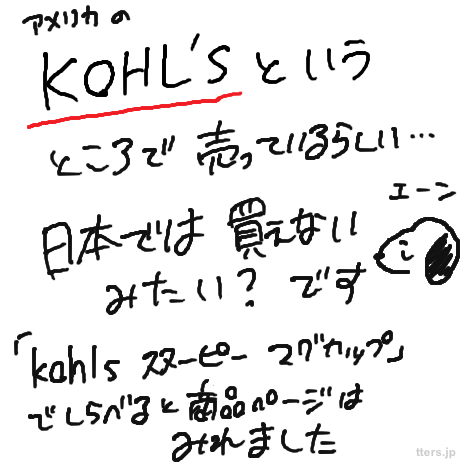 アメリカの
KOHL'sという
ところで売っているらしい…
日本では買えない
エーン
みたい?です
「kohls スヌーピー マグカップ」
でしらべると商品ページは
みれました
tters.jp